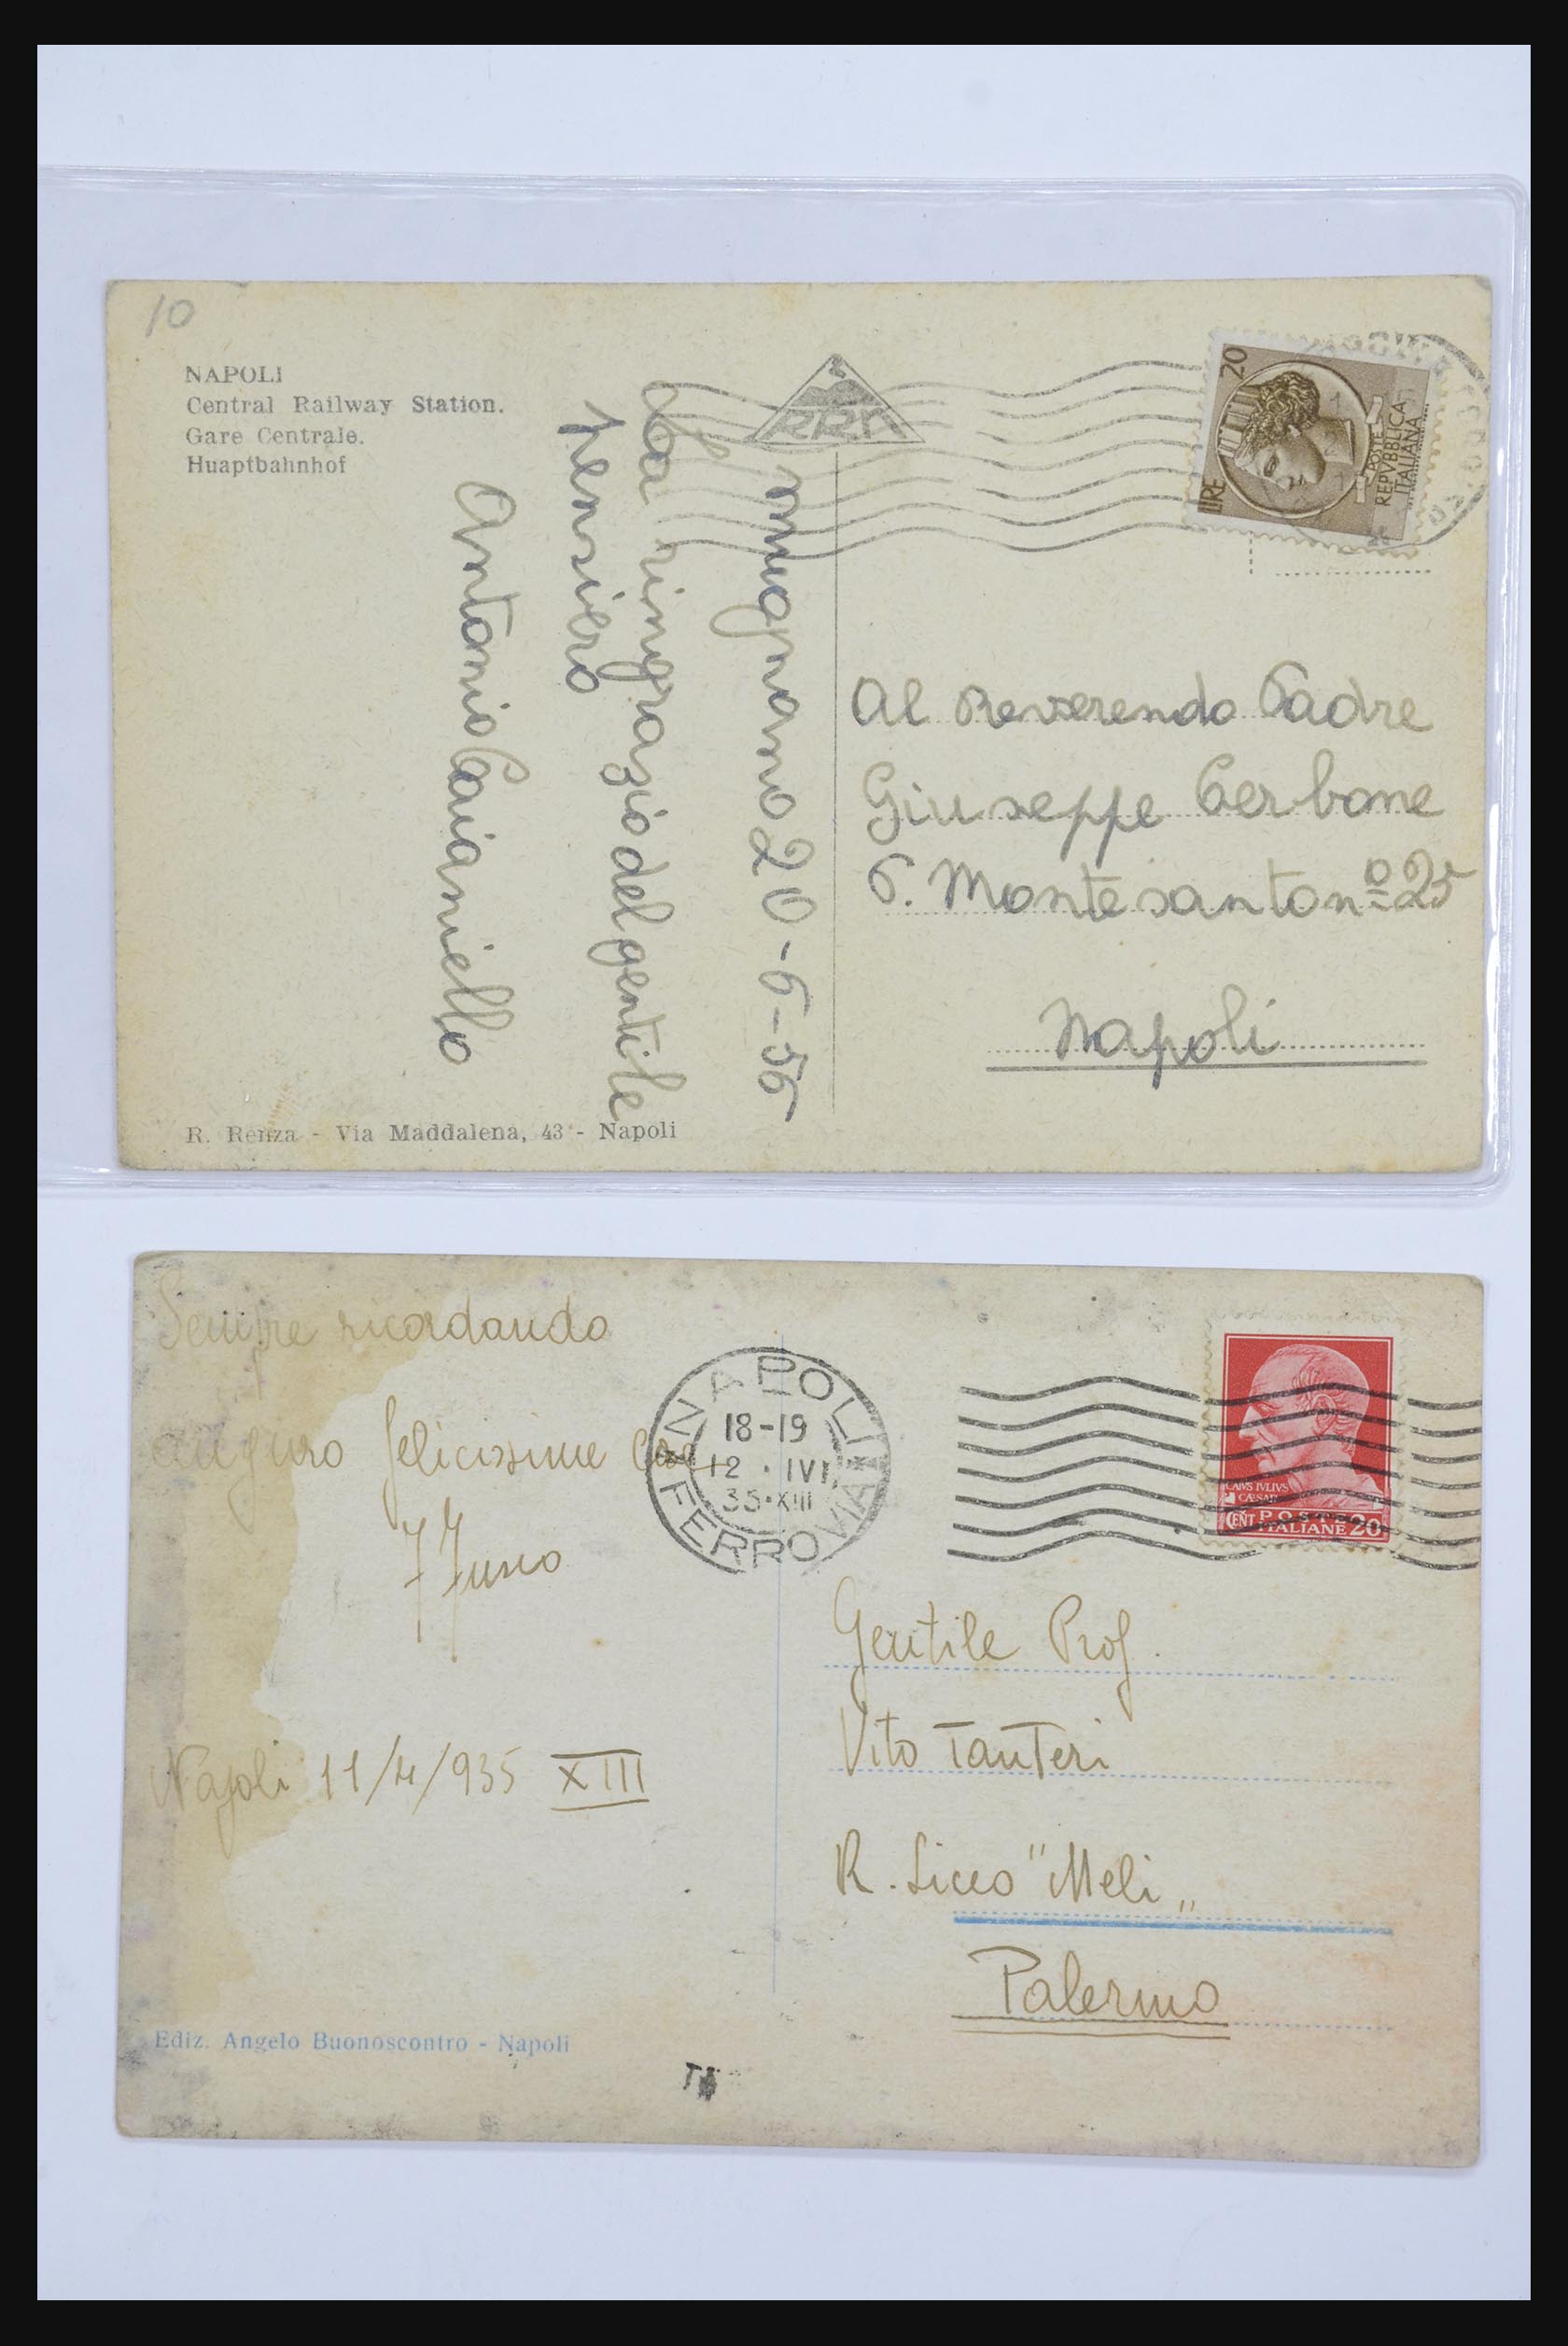 10
NAPOLI
Central Railway Station.
Gare Centrale.
Huaptbahnhof
RRN
20
LIRE
POSTE
REPVBBLICA
ITALIANA
mugnano 20-6-56
La ringrazio del gentile
pensiero
Antonio Caianiello
Al Reverendo Padre
Giuseppe Cerbone
C. Montesanto nº 25
Napoli
R. Renza - Via Maddalena, 43 - Napoli
Sempre ricordando
auguro felicissime
Napoli 11/4/935 XIII
NAPOLI
18-19
12 · IV
35·XIII
FERROVIA
CAIVS IVLIVS
CÆSAR
CENT POSTE 20
ITALIANE
Gentile Prof.
Vito Tanteri
R. Liceo "Meli"
Palermo
Ediz. Angelo Buonoscontro - Napoli